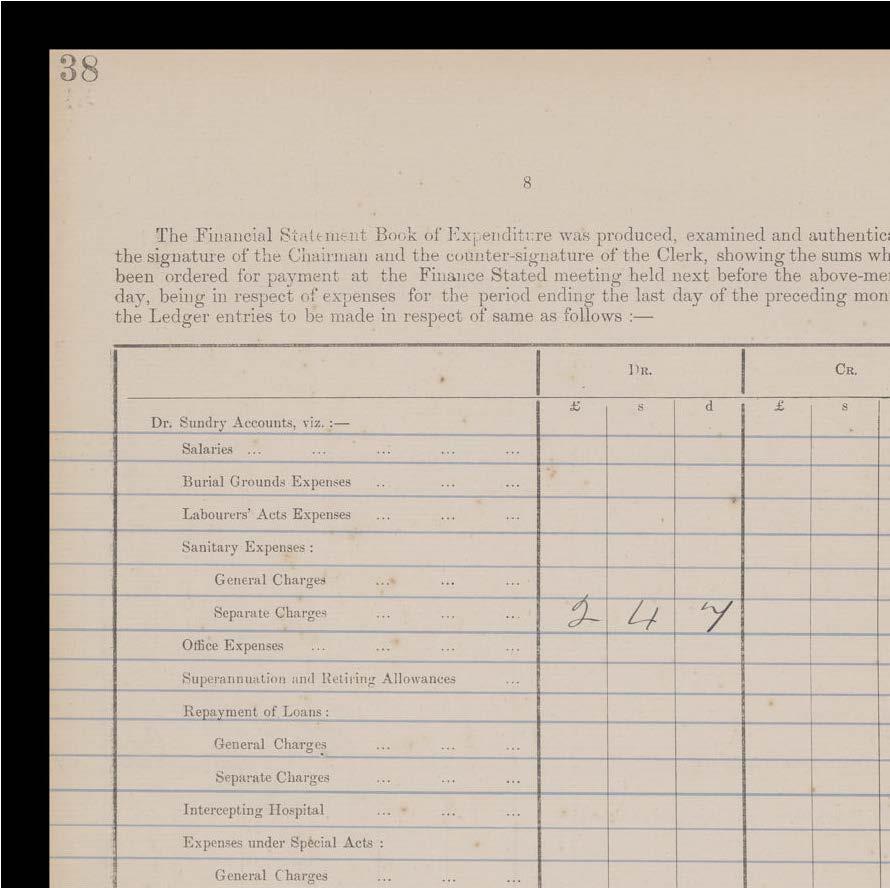 38
8
The Financial Statement Book of Expenditure was produced, examined and authentica
the signature of the Chairman and the counter-signature of the Clerk, showing the sums wh
been ordered for payment at the Finance Stated meeting held next before the above-me
day, being in respect of expenses for the period ending the last day of the preceding mon
the Ledger entries to be made in respect of same as follows :—
DR. CR.
£ s d £ s
Dr. Sundry Accounts, viz. :—
Salaries ... ... ... ... ...
Burial Grounds Expenses ... ... ...
Labourers' Acts Expenses ... ... ...
Sanitary Expenses :
General Charges ... ... ...
Separate Charges ... ... ... 2 4 7
Office Expenses ... ... ... ...
Superannuation and Retiring Allowances ...
Repayment of Loans :
General Charges ... ... ...
Separate Charges ... ... ...
Intercepting Hospital ... ... ...
Expenses under Special Acts :
General Charges ... ... ...